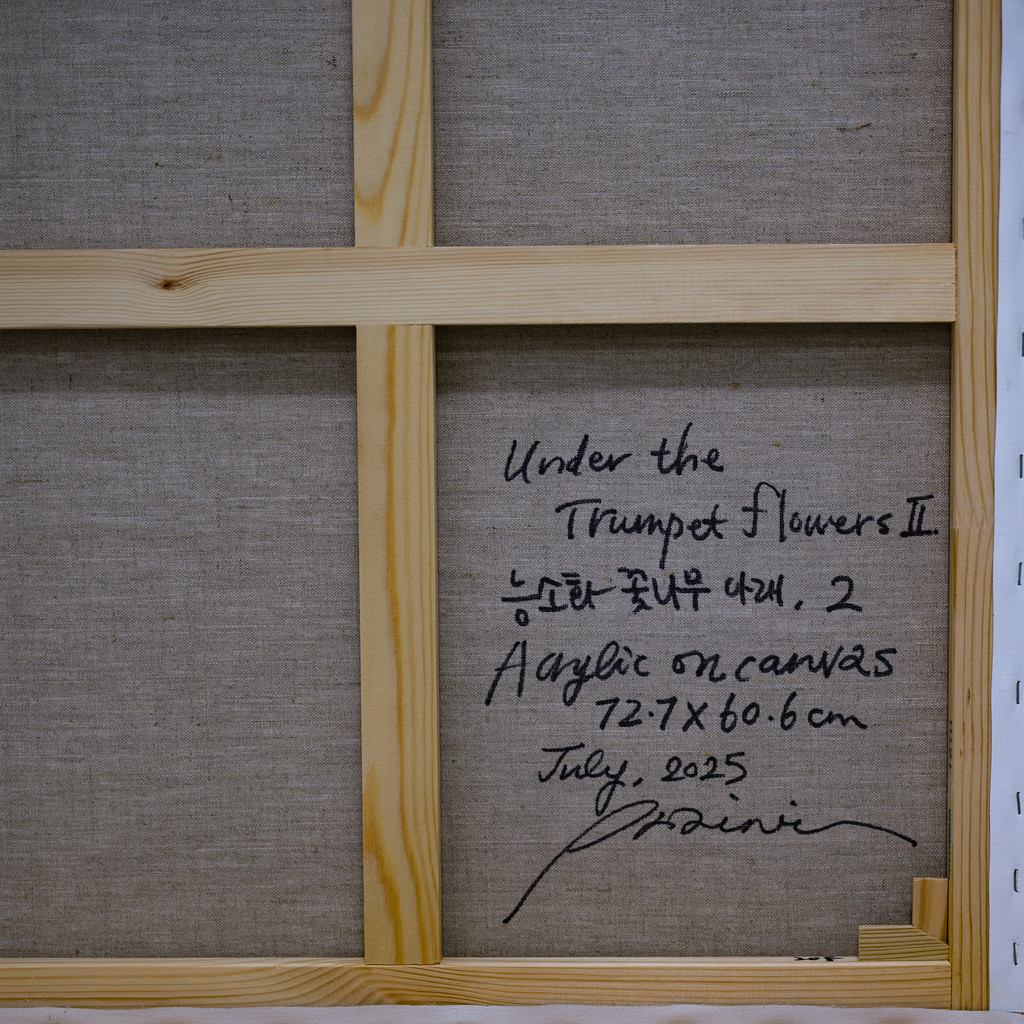 Under the
Trumpet flowers II.
능소화 꽃나무 아래, 2
Acrylic on canvas
72.7 x 60.6 cm
July, 2025